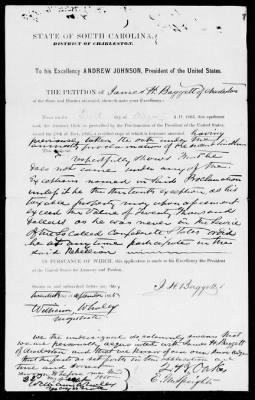 STATE OF SOUTH CAROLINA.
DISTRICT OF CHARLESTON.
To his Excellency ANDREW JOHNSON, President of the United States.
THE PETITION of James H Baggett of Charleston
of the State and District aforesaid, sheweth unto your Excellency:
That under
A. D. 1865, this applicant
took the Amnesty Oath, as prescribed by the Proclamation of the President of the United States,
issued the 29th of May, 1865, a certified copy of which is hereunto annexed, having
previously taken the oath under the
amnesty proclamation of President Lincoln
respectfully shows that he
does not come under any of the
Exceptions named in said Proclamation
unless it be the thirteenth exception as his
taxable property may upon assessment
exceed the value of twenty thousand
dollars as he was never in the service
of the so called Confederate States
he at any time participate in the
said Rebellion
IN PURSUANCE OF WHICH, this application is made to his Excellency the President
of the United States for Amnesty and Pardon.
Sworn to and subscribed before me, this
day of September 1865
J H Baggett
William Whaley
Magistrate
we the undersigned do solemnly swear that
we are personally acquainted with James H Baggett
of Charleston and that we know of our own knowledge
that the facts as set forth in this application are
true and correct
Sworn to before me this
William Whaley
Magistrate